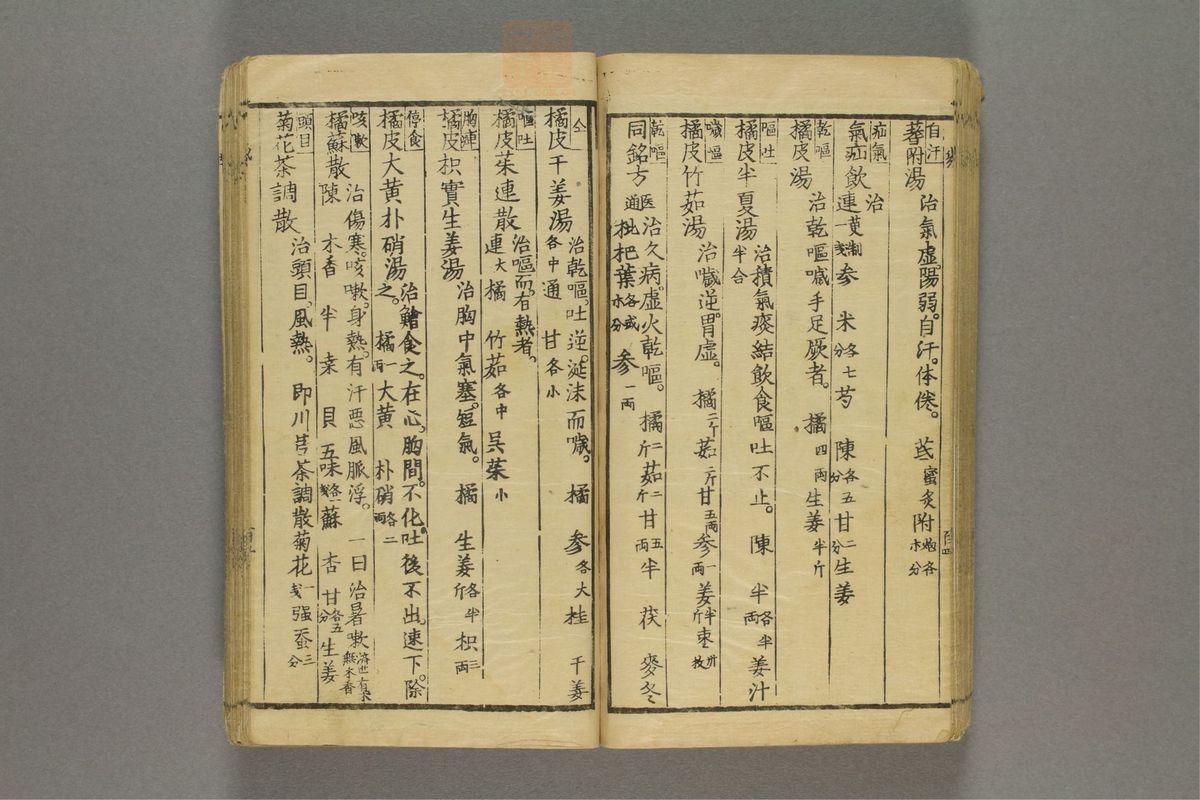 自汗
蓍附湯 治氣虛陽弱。自汗。体倦。 芪蜜炙 附炮各
疝氣
氣疝飲 治
連 参 米各七分 芍 陳各五分 甘二分 生姜
乾嘔
橘皮湯 治乾嘔噦手足厥者。 橘四両 生姜半斤
嘔吐
橘皮半夏湯 治積氣痰結飲食嘔吐不止。 陳 半各半両 姜汁半合
噦嘔
橘皮竹茹湯 治噦逆。胃虛。 橘二斤 茹二斤 甘五両 参一両 姜半斤 枣卅枚
乾嘔
同銘方 医通 治久病。虛火乾嘔。 橘二斤 茹二斤 甘五両 半 茯 麥冬
枇杷葉 参一両
仝
橘皮干姜湯 治乾嘔。吐逆。涎沫而噦。 橘 参各大 桂 干姜各中 通 甘各小
嘔吐
橘皮茱連散 治嘔而。有熱者。
連大 橘 竹茹各中 呉茱小
胸連
橘皮枳實生姜湯 治胸中氣塞。短氣。 橘 生姜各半斤 枳三両
停食
橘皮大黄朴硝湯 治鱠食之。在心。胸間。不化。吐後不出。速下。除之。 橘一両 大黄 朴硝各二両
咳嗽
橘蘇散 治傷寒。咳嗽。身熱。有汗悪風脈浮。 一曰治暑嗽
陳 木香 半 桒 貝 五味 蘇 杏 甘各五分 生姜
頭目
菊花茶調散 治頭目。風熱。 即川芎茶調散菊花一戔 强蚕三分